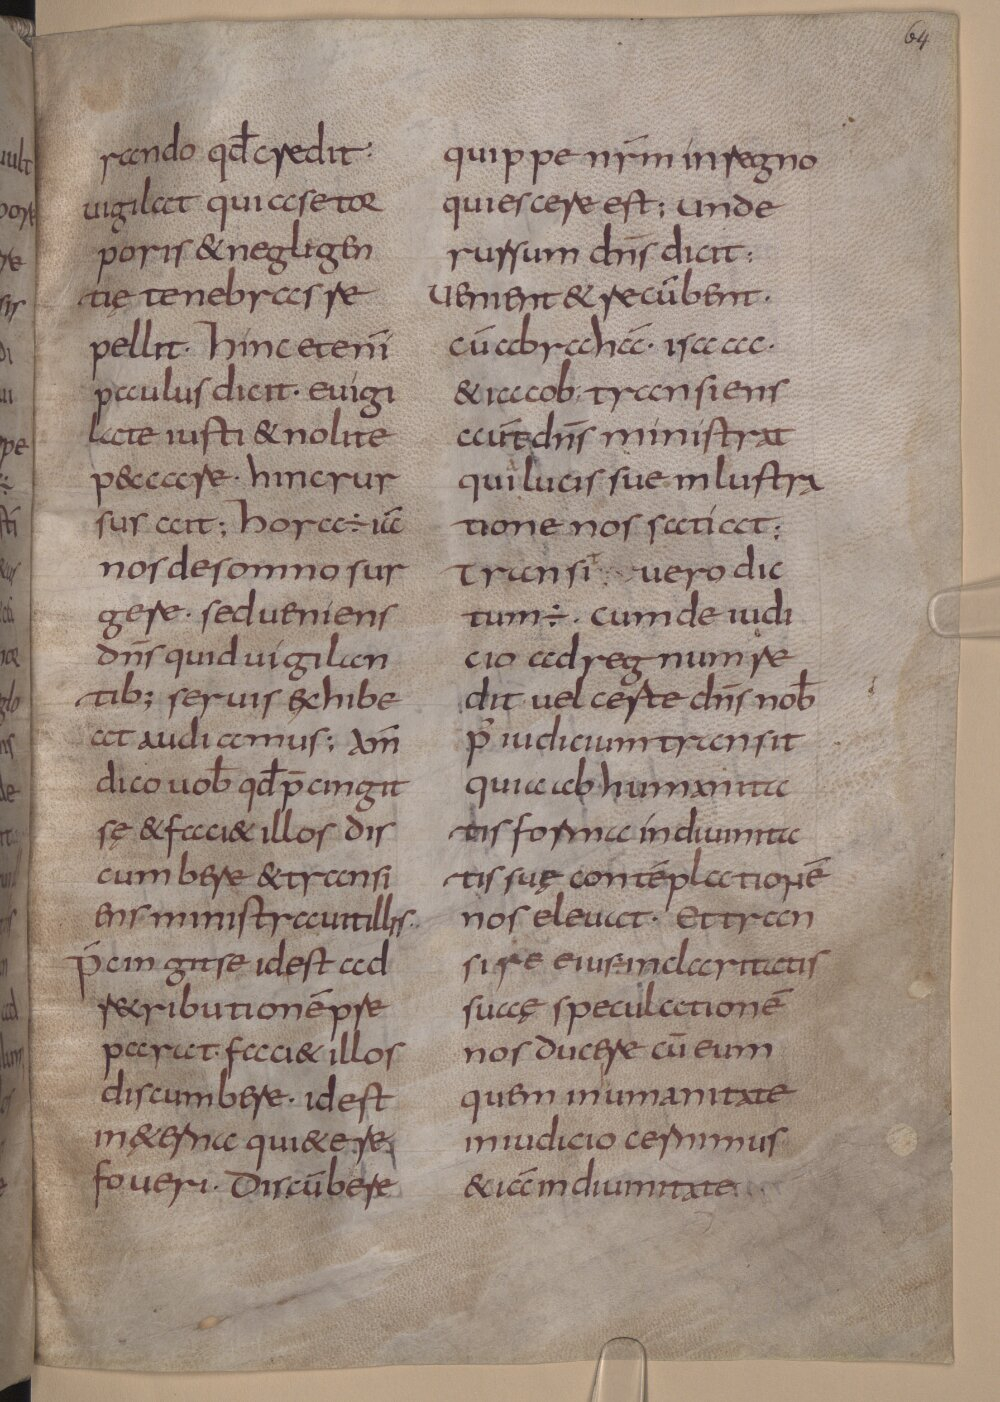 64
rando qđ credit·
uigilat qui a se tor
poris & neglegen
tię tenebras re
pellit· hinc eteni̅
paulus dicit· euigi
late iusti & nolite
p&ccare· hinc rur
sus ait; hora ÷ ia̅
nos de somno sur
gere· sed ueniens
dn̅s quid uigilan
tib; seruis exhibe
at audiamus; Am̅
dico uob̅ qđ p̅cingit
sę & faci& illos dis
cumbere & transi
ens ministrauit illis·
p̅cingit se id est ad
r&ributione̅ pre
parat· faci& illos
discumbere· id est
in &erna qui&e re
foueri· Discu̅bere
quippe nr̅m in regno
quiescere est; unde
rursum dn̅s dicit·
Uenient & recu̅bent·
cu̅ abraha̅· isaac·
& iacob· transiens
aut̅ dn̅s ministrat
qui lucis sue inlustra
tione nos satiat;
Transi vero dic
tum ÷· cum de iudi
cio ad regnum re
dit uel certe dn̅s nob̅
p̅ iudicium transit
quia ab humanita
tis forma in diuinita
tis suę conte̅platione̅
nos eleuat· Et tran
sire eius in claritatis
suaę speculatione̅
nos ducere cu̅ eum
quem in umanitate
in iudicio cernimus
& ia̅ in diuinitate